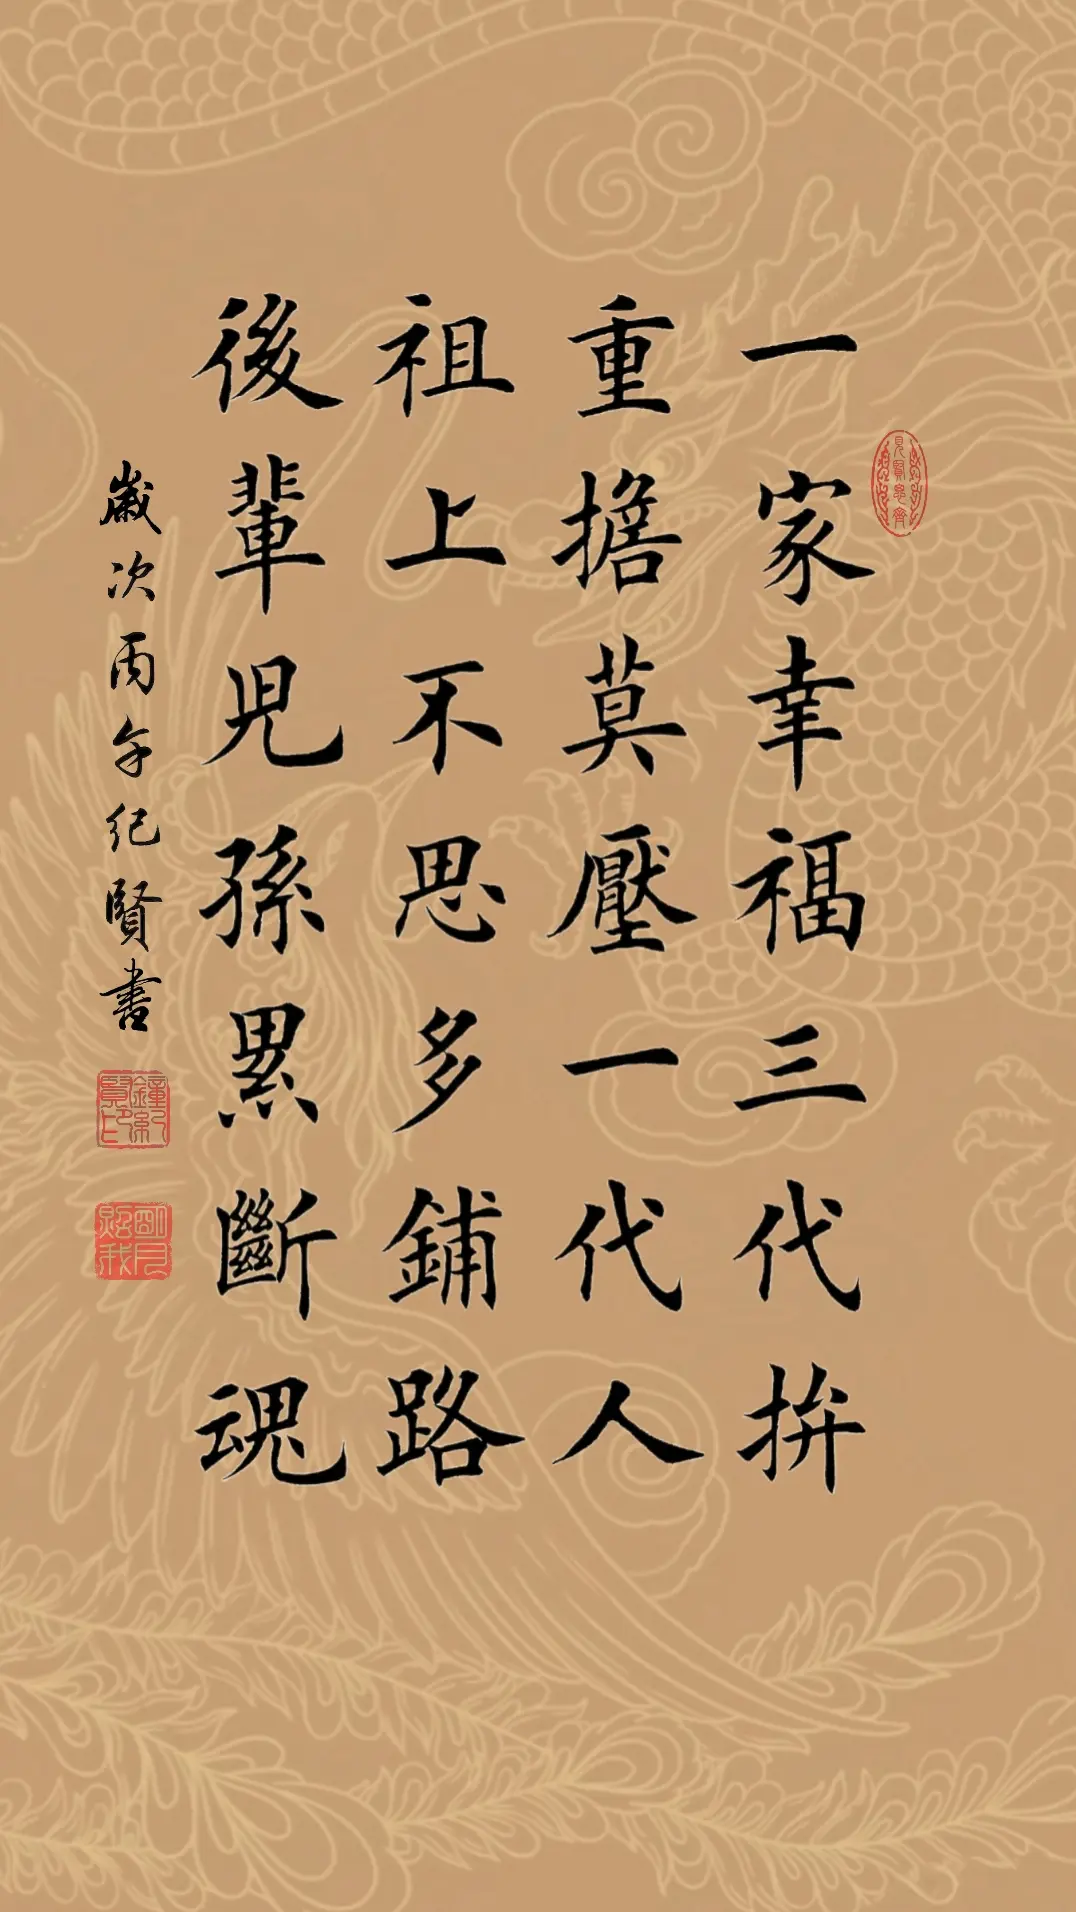 一家幸福三代拚
重擔莫壓一代人
祖上不思多鋪路
後輩兒孫累斷魂
歲次丙午紀賢書
見賢思齊
鐘紀賢印